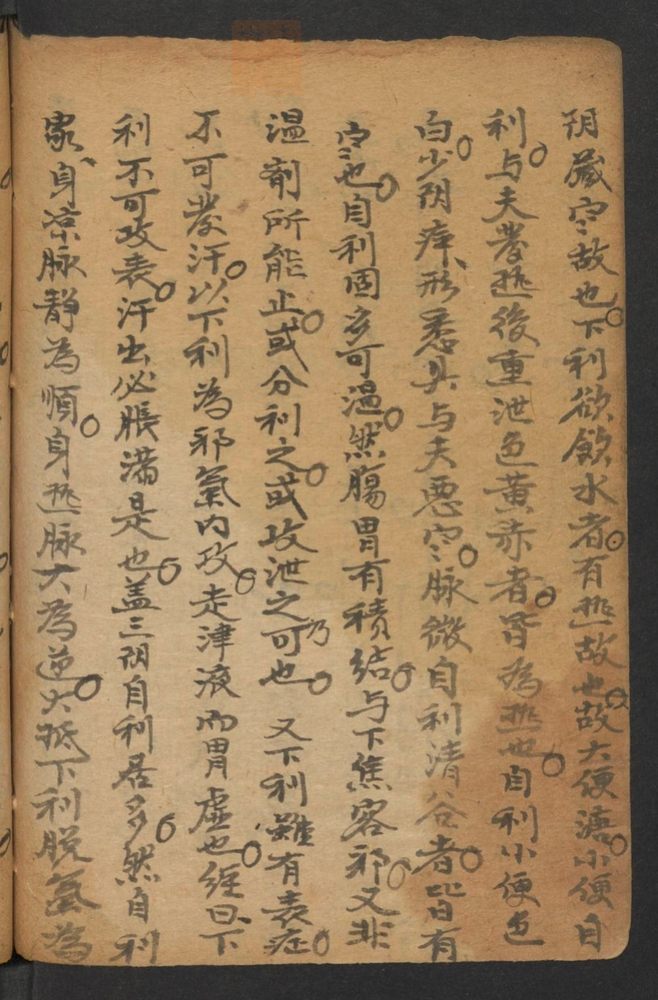 阴藏寒故也下利欲飲水者有热故也故大便溏小便自
利与夫發热後重泄色黄赤者皆為热也自利小便色
白少阴病形悉具与夫恶寒脉微自利清谷者皆有
寒也自利固多可温然腸胃有積結与下焦客邪又非
温剤所能止或分利之或攻泄之乃可也又下利雖有表症
不可發汗以下利為邪氣内攻走津液而胃虚也经曰下
利不可攻表汗出必脹滿是也盖三阴自利居多然自利
家身凉脉静為順身热脉大為逆大抵下利脱氣為